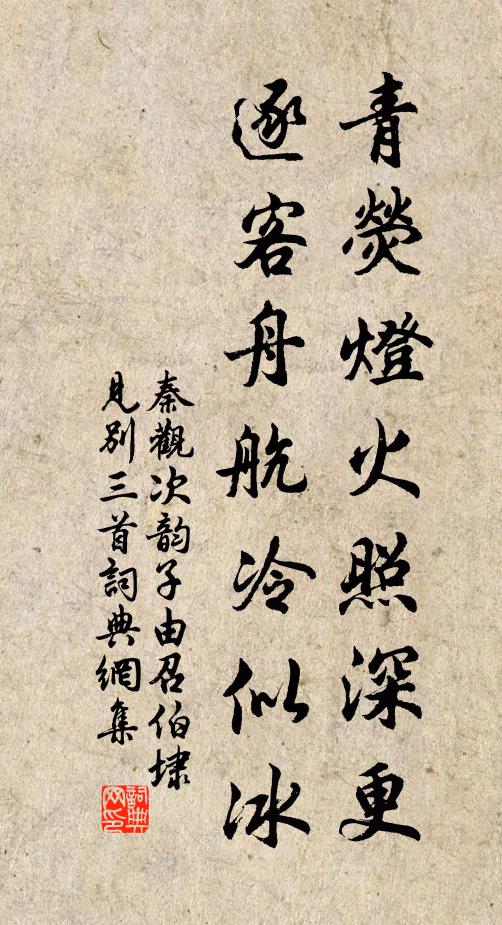 青熒燈火照深更
逐客舟航冷似冰
秦觀次韵子由召伯埭
見別三首詞典網集
詞典
网印